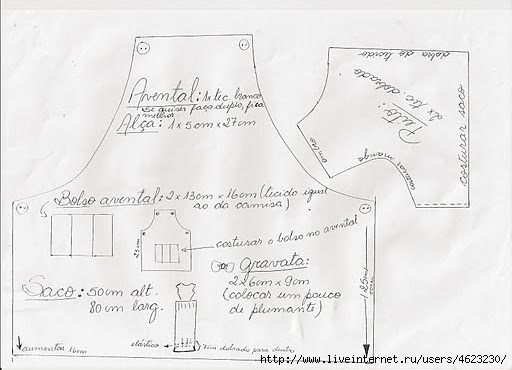 Avental: 1x tec. branco
se quiser faça duplo, fica
melhor.
Alça: 1 x 5cm x 27cm
dobra do tecido
Peito:
2x tec. dobrado
costurar saco
ombro
costurar manga
Bolso avental: 2 x 13cm x 16cm (tecido igual
ao da camisa)
costurar o bolso no avental
25cm
Gravata:
2x6cm x 9cm
(colocar um pouco
de plumante)
Saco: 50cm alt.
80cm larg.
elástico
7cm dobrado para dentro
aumentar 16cm
http://www.liveinternet.ru/users/4623230/